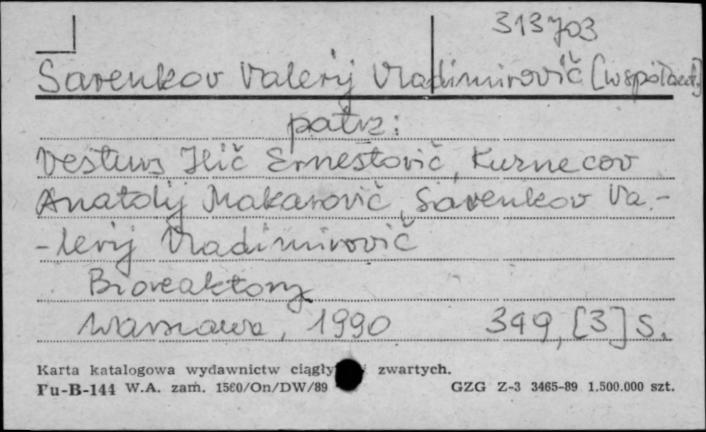 313703
Savenkov Valerij Vladimirovič [współaut.]
patrz:
Vestus Ilič Ernestovič, Kuznecov
Anatolij Makarovič, Savenkov Va-
-lerij Vladimirovič
Bioreaktory
Warszawa, 1990 349, [3] s.
Karta katalogowa wydawnictw ciągły zwartych.
Pu-B-144 W.A. zam. 1580/On/DW/89 GZG Z-3 3465-89 1.500.000 szt.